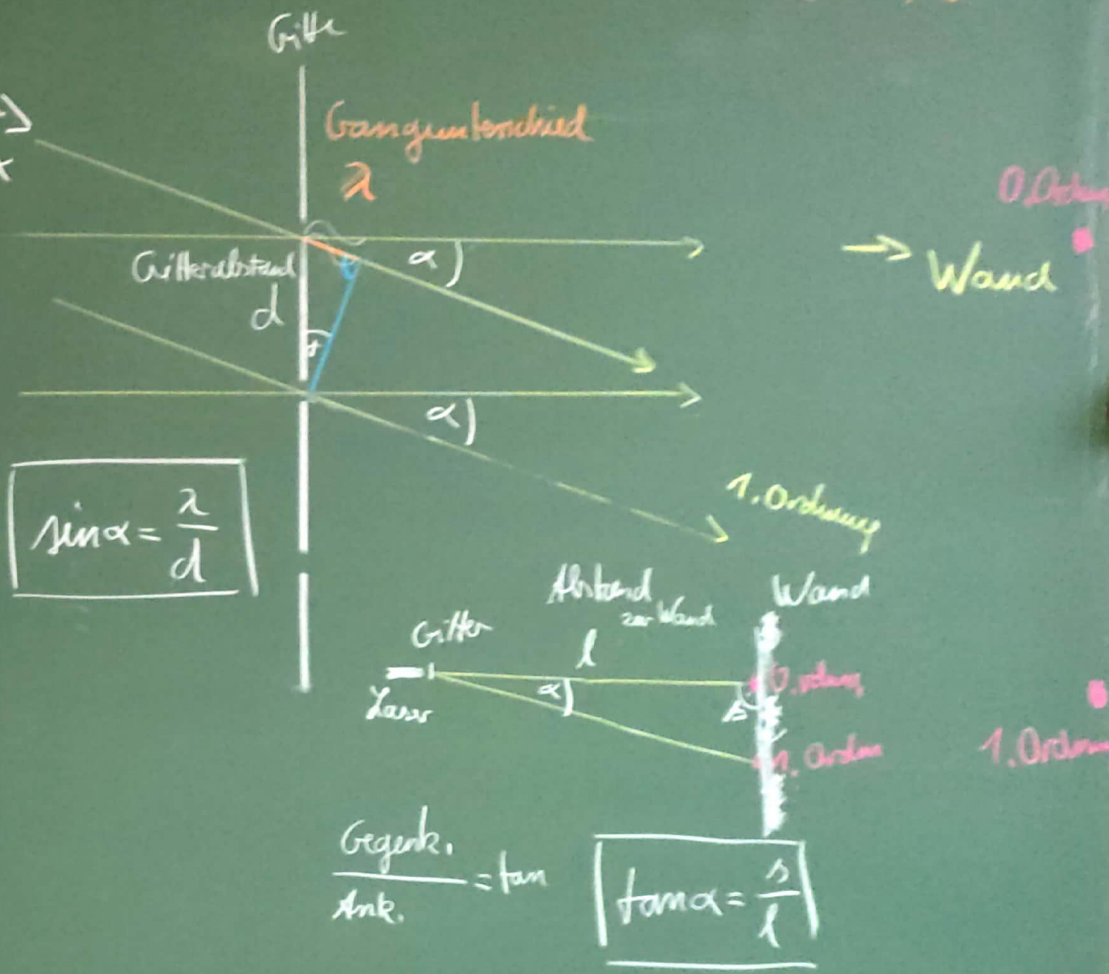 Gitte
Gangunterschied
λ
0.Ordnun
α
→ Wand
Gitterabstand
d
α
sinα = λ/d
1.Ordnung
Abstand
zur Wand
Wand
Gitter
l
α
Laser
s
1.Ordnun
Gegenk.
Ank.
= tan
tanα = s/l